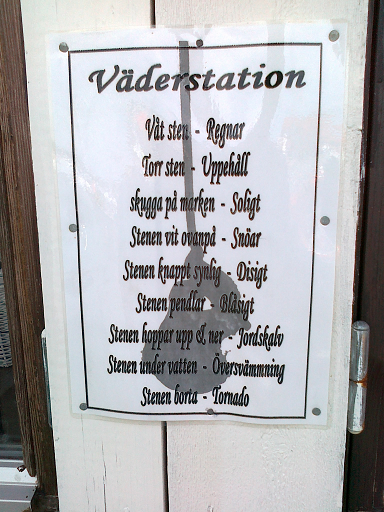 Väderstation
Våt sten - Regnar
Torr sten - Uppehåll
skugga på marken - Soligt
Stenen vit ovanpå - Snöar
Stenen knappt synlig - Disigt
Stenen pendlar - Blåsigt
Stenen hoppar upp & ner - Jordskalv
Stenen under vatten - Översvämmning
Stenen borta - Tornado